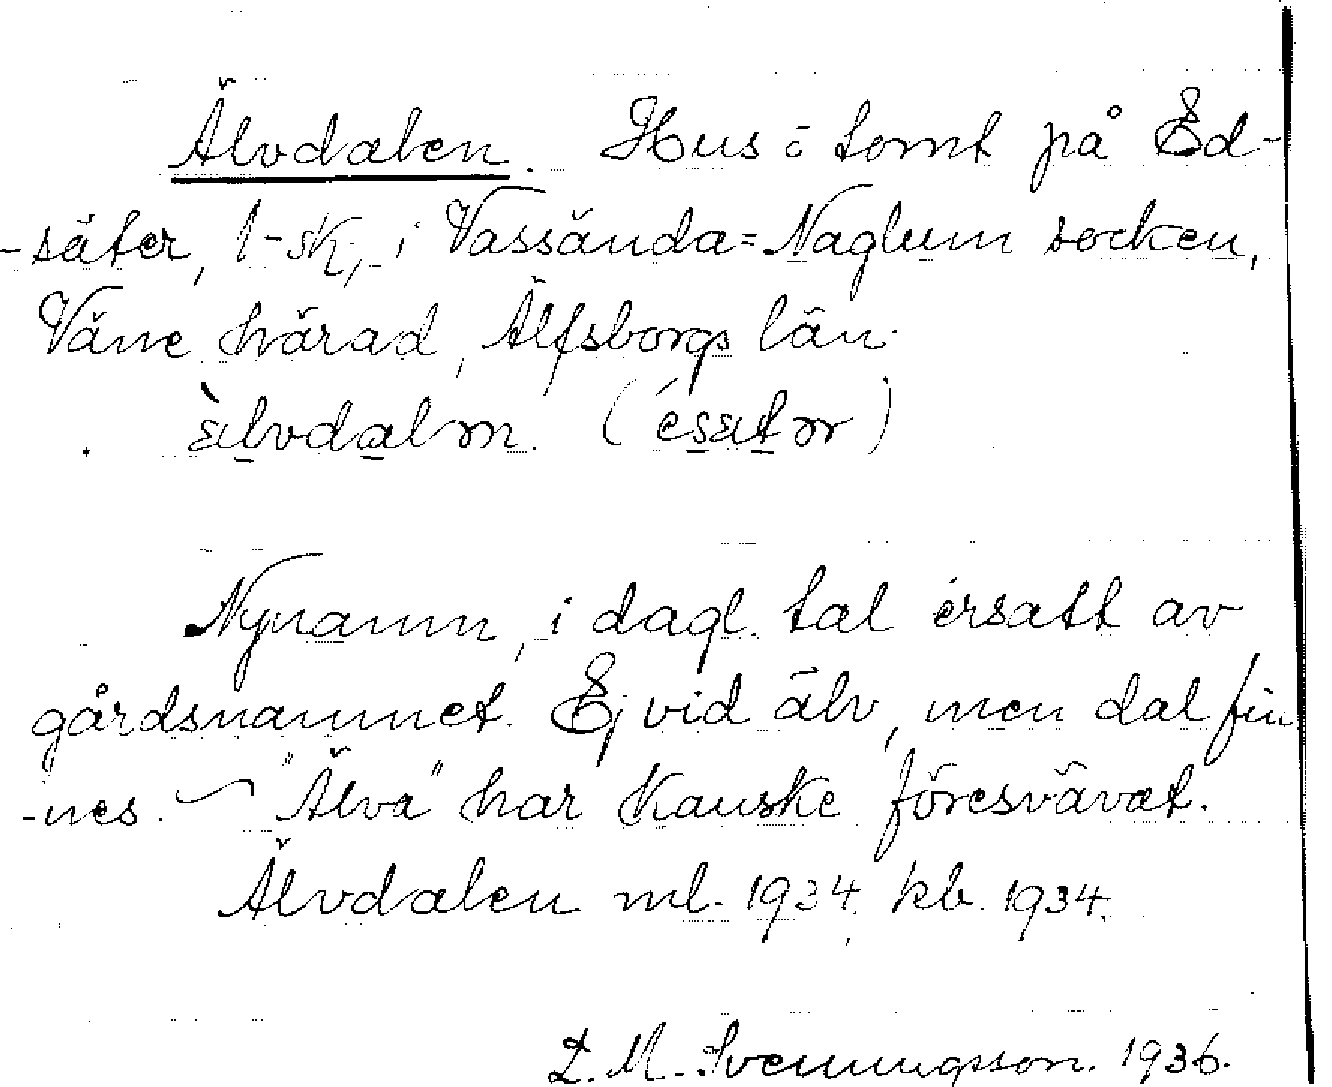 Älvdalen. Hus å tomt på Ed-
-säter, l-sk, i Vassända=Naglum socken,
Väne härad, Älfsborgs län.
älvdalm. (ésætər)
Nynamn, i dagl. tal ersatt av
gårdsnamnet. Ej vid älv, men dal fin-
-nes. ~ "Älva" har kanske föresvävat.
Älvdalen ml. 1934, kb. 1934.
L. M. Svenungsson. 1936.